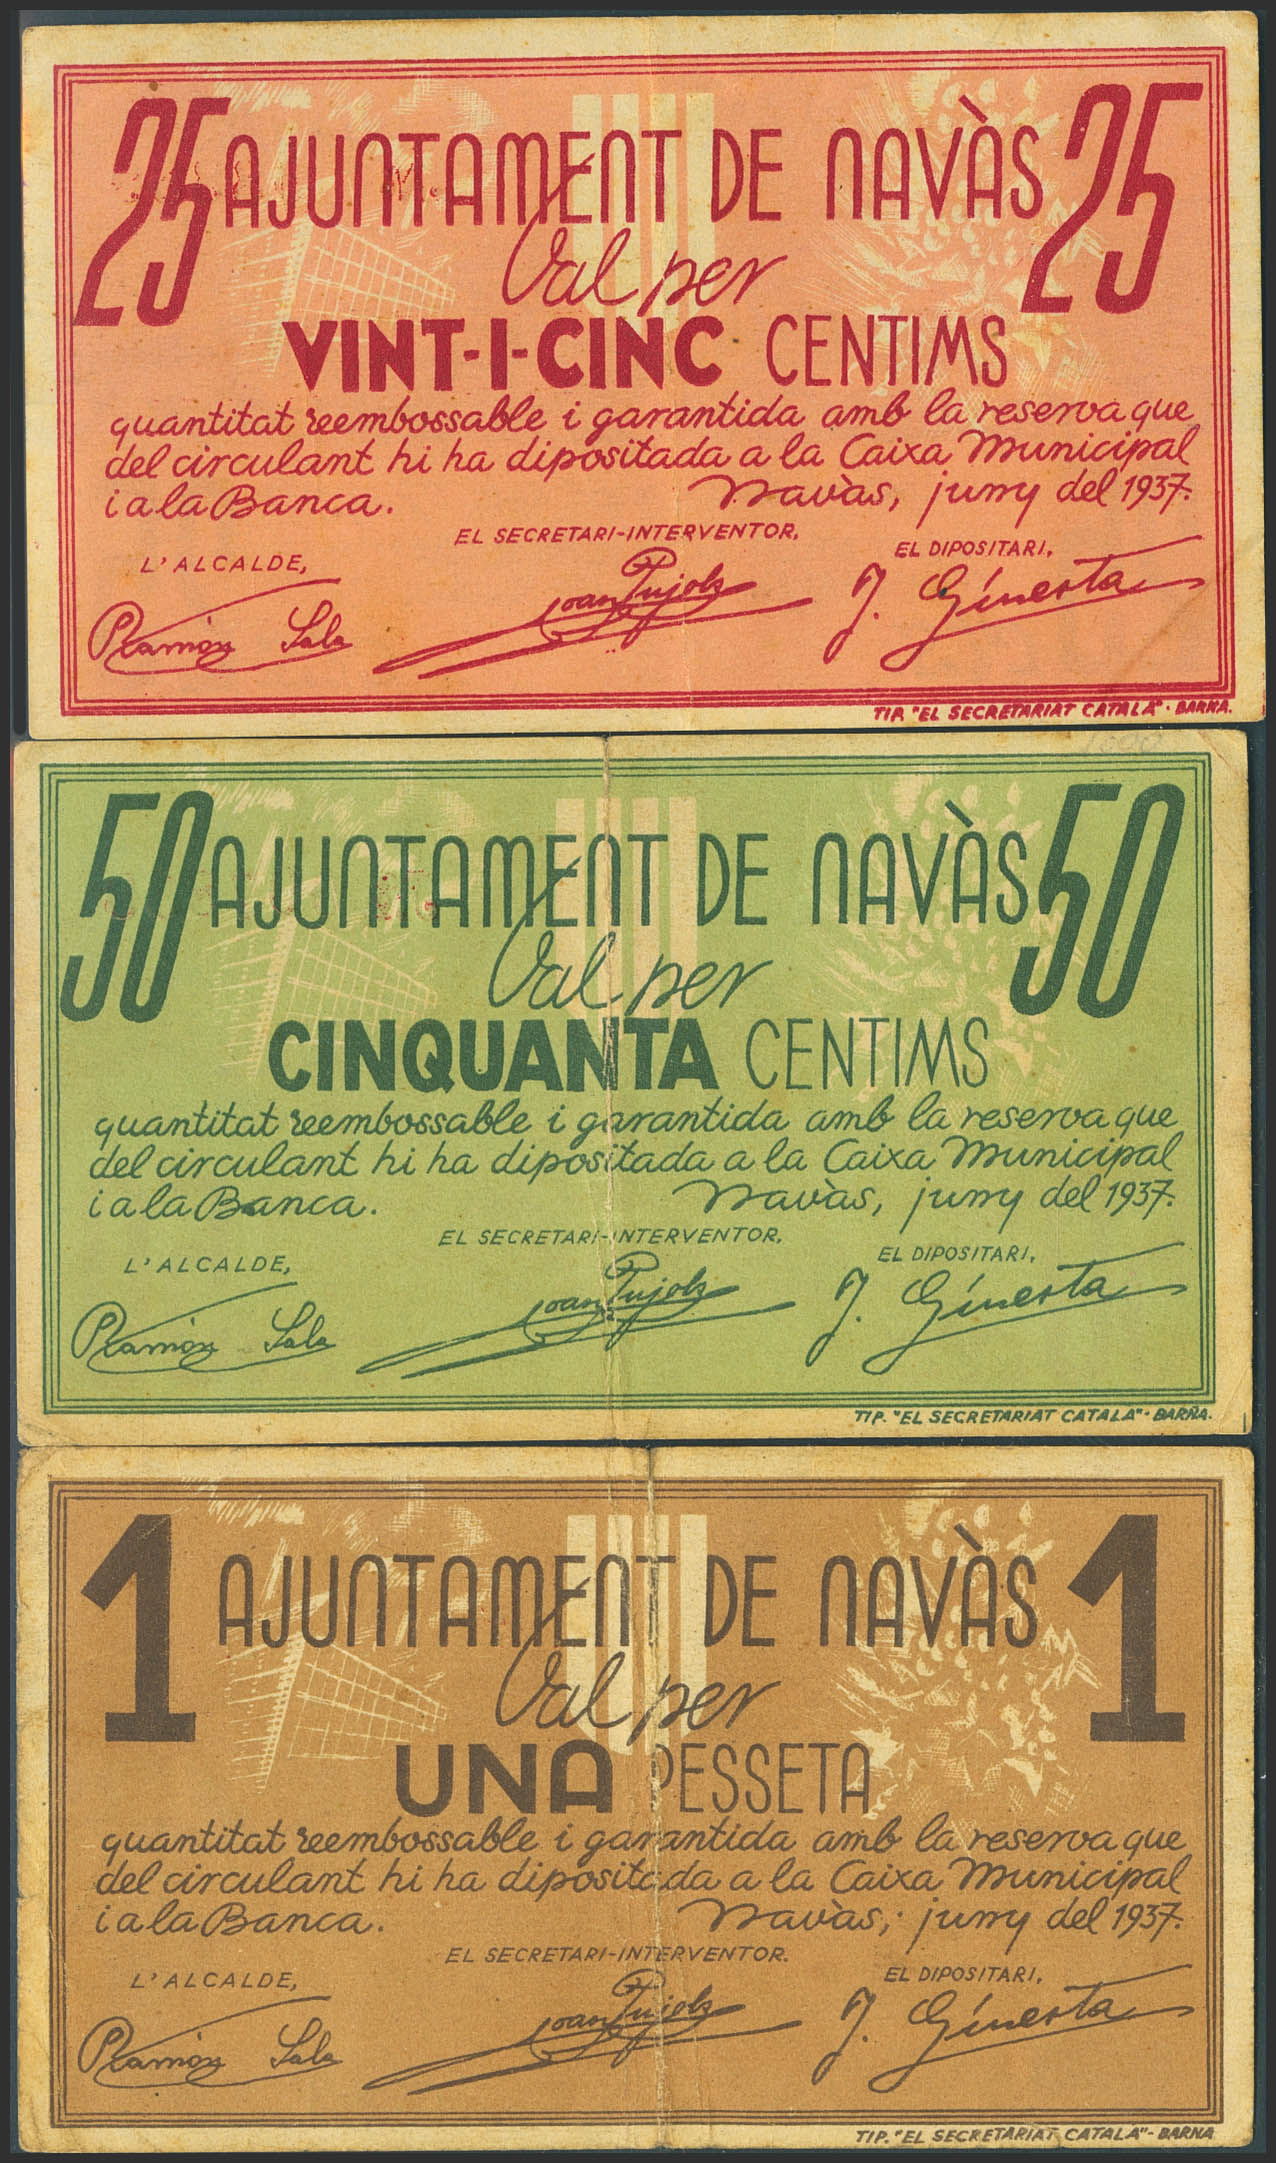 25 AJUNTAMENT DE NAVÀS 25
Val per
VINT-I-CINC CENTIMS
quantitat reembossable i garantida amb la reserva que
del circulant hi ha dipositada a la Caixa Municipal
i a la Banca. Navàs, juny del 1937.
EL SECRETARI-INTERVENTOR,
L'ALCALDE, EL DIPOSITARI,
Ramón Sala Joan Pujols J. Ginesta
TIP. "EL SECRETARIAT CATALÀ" - BARNA.
50 AJUNTAMENT DE NAVÀS 50
Val per
CINQUANTA CENTIMS
quantitat reembossable i garantida amb la reserva que
del circulant hi ha dipositada a la Caixa Municipal
i a la Banca. Navàs, juny del 1937.
EL SECRETARI-INTERVENTOR,
L'ALCALDE, EL DIPOSITARI,
Ramón Sala Joan Pujols J. Ginesta
TIP. "EL SECRETARIAT CATALÀ" - BARNA.
1 AJUNTAMENT DE NAVÀS 1
Val per
UNA PESSETA
quantitat reembossable i garantida amb la reserva que
del circulant hi ha dipositada a la Caixa Municipal
i a la Banca. Navàs, juny del 1937.
EL SECRETARI-INTERVENTOR.
L'ALCALDE, EL DIPOSITARI,
Ramón Sala Joan Pujols J. Ginesta
TIP. "EL SECRETARIAT CATALÀ" - BARNA